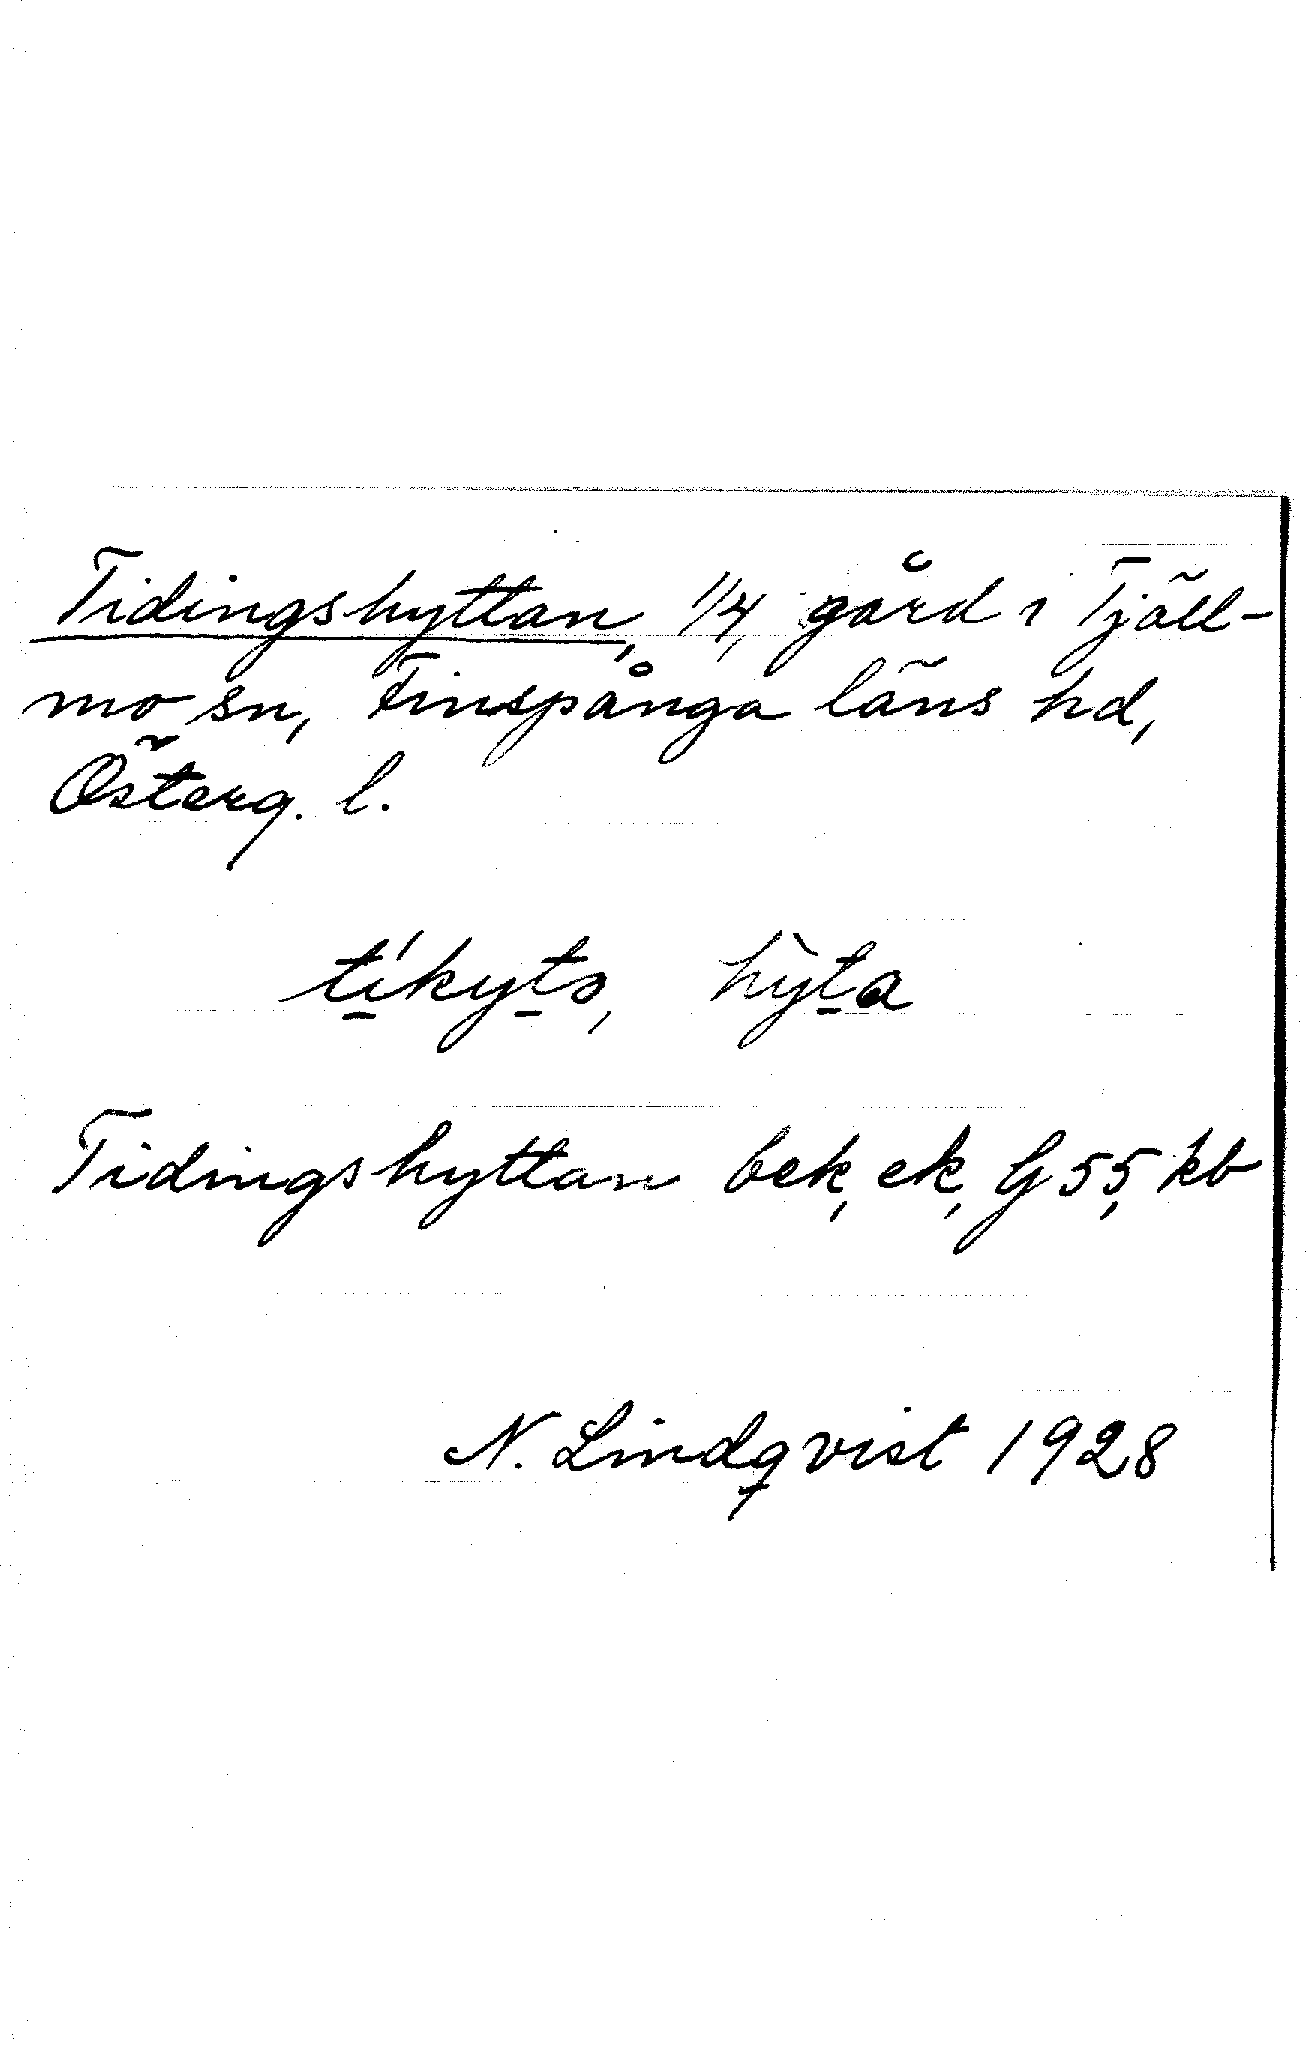 Tidingshyttan, 1/4, gård i Tjäll-
mo sn, Finspånga läns hd,
Österg. l.
tíkyta, hỳta
Tidingshyttan bek, ek, G 55, kb
N. Lindqvist 1928